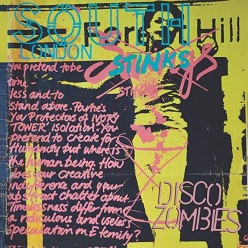 SOUTH
LONDON
Hill
STINKS
You pretend to be
less and to
stand above. You're
You Protectors of IVORY
TOWER isolation! You
pretend to create for
Humanity but where is
the human being. How
does your creative
indifference and your
chatter about
Timelessness differ from
a ridiculous and celest
Speculation on Eternity?
DISCO
ZOMBIES